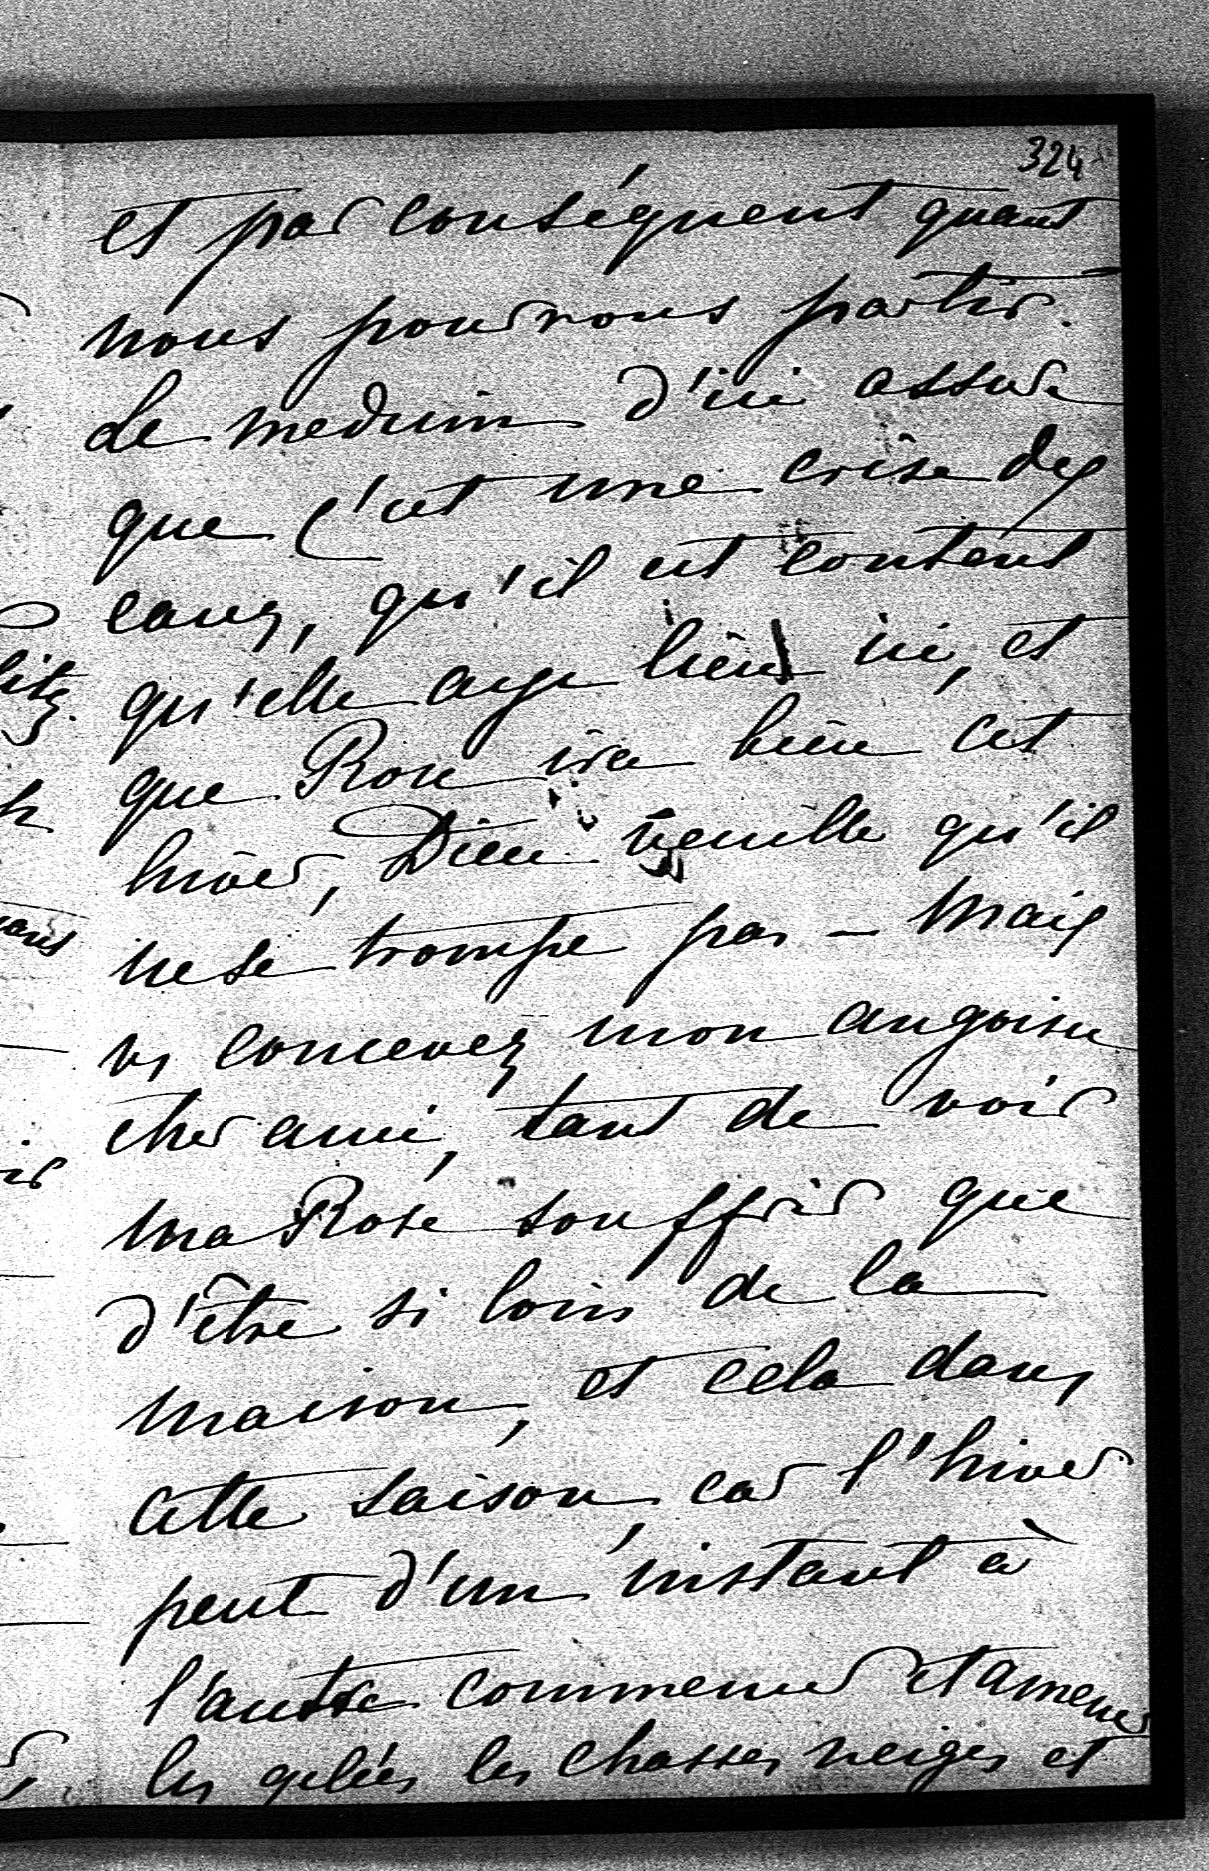 324
et par conséquent quant
nous pourrons partir.
Le medecin d'ici assure
que c'est une crise des
eaux, qu'il est content
qu'elle aye lieu ici, et
que Rose ira bien cet
hiver, Dieu veuille qu'il
ne se trompe pas – Mais
vs concevez mon angoisse
cher ami, tant de voir
ma Rose souffrir que
d'être si loin de la
maison, et cela dans
cette saison, car l'hiver
peut d'un instant à
l'autre commencer et amener
les gelées les chasses neiges et